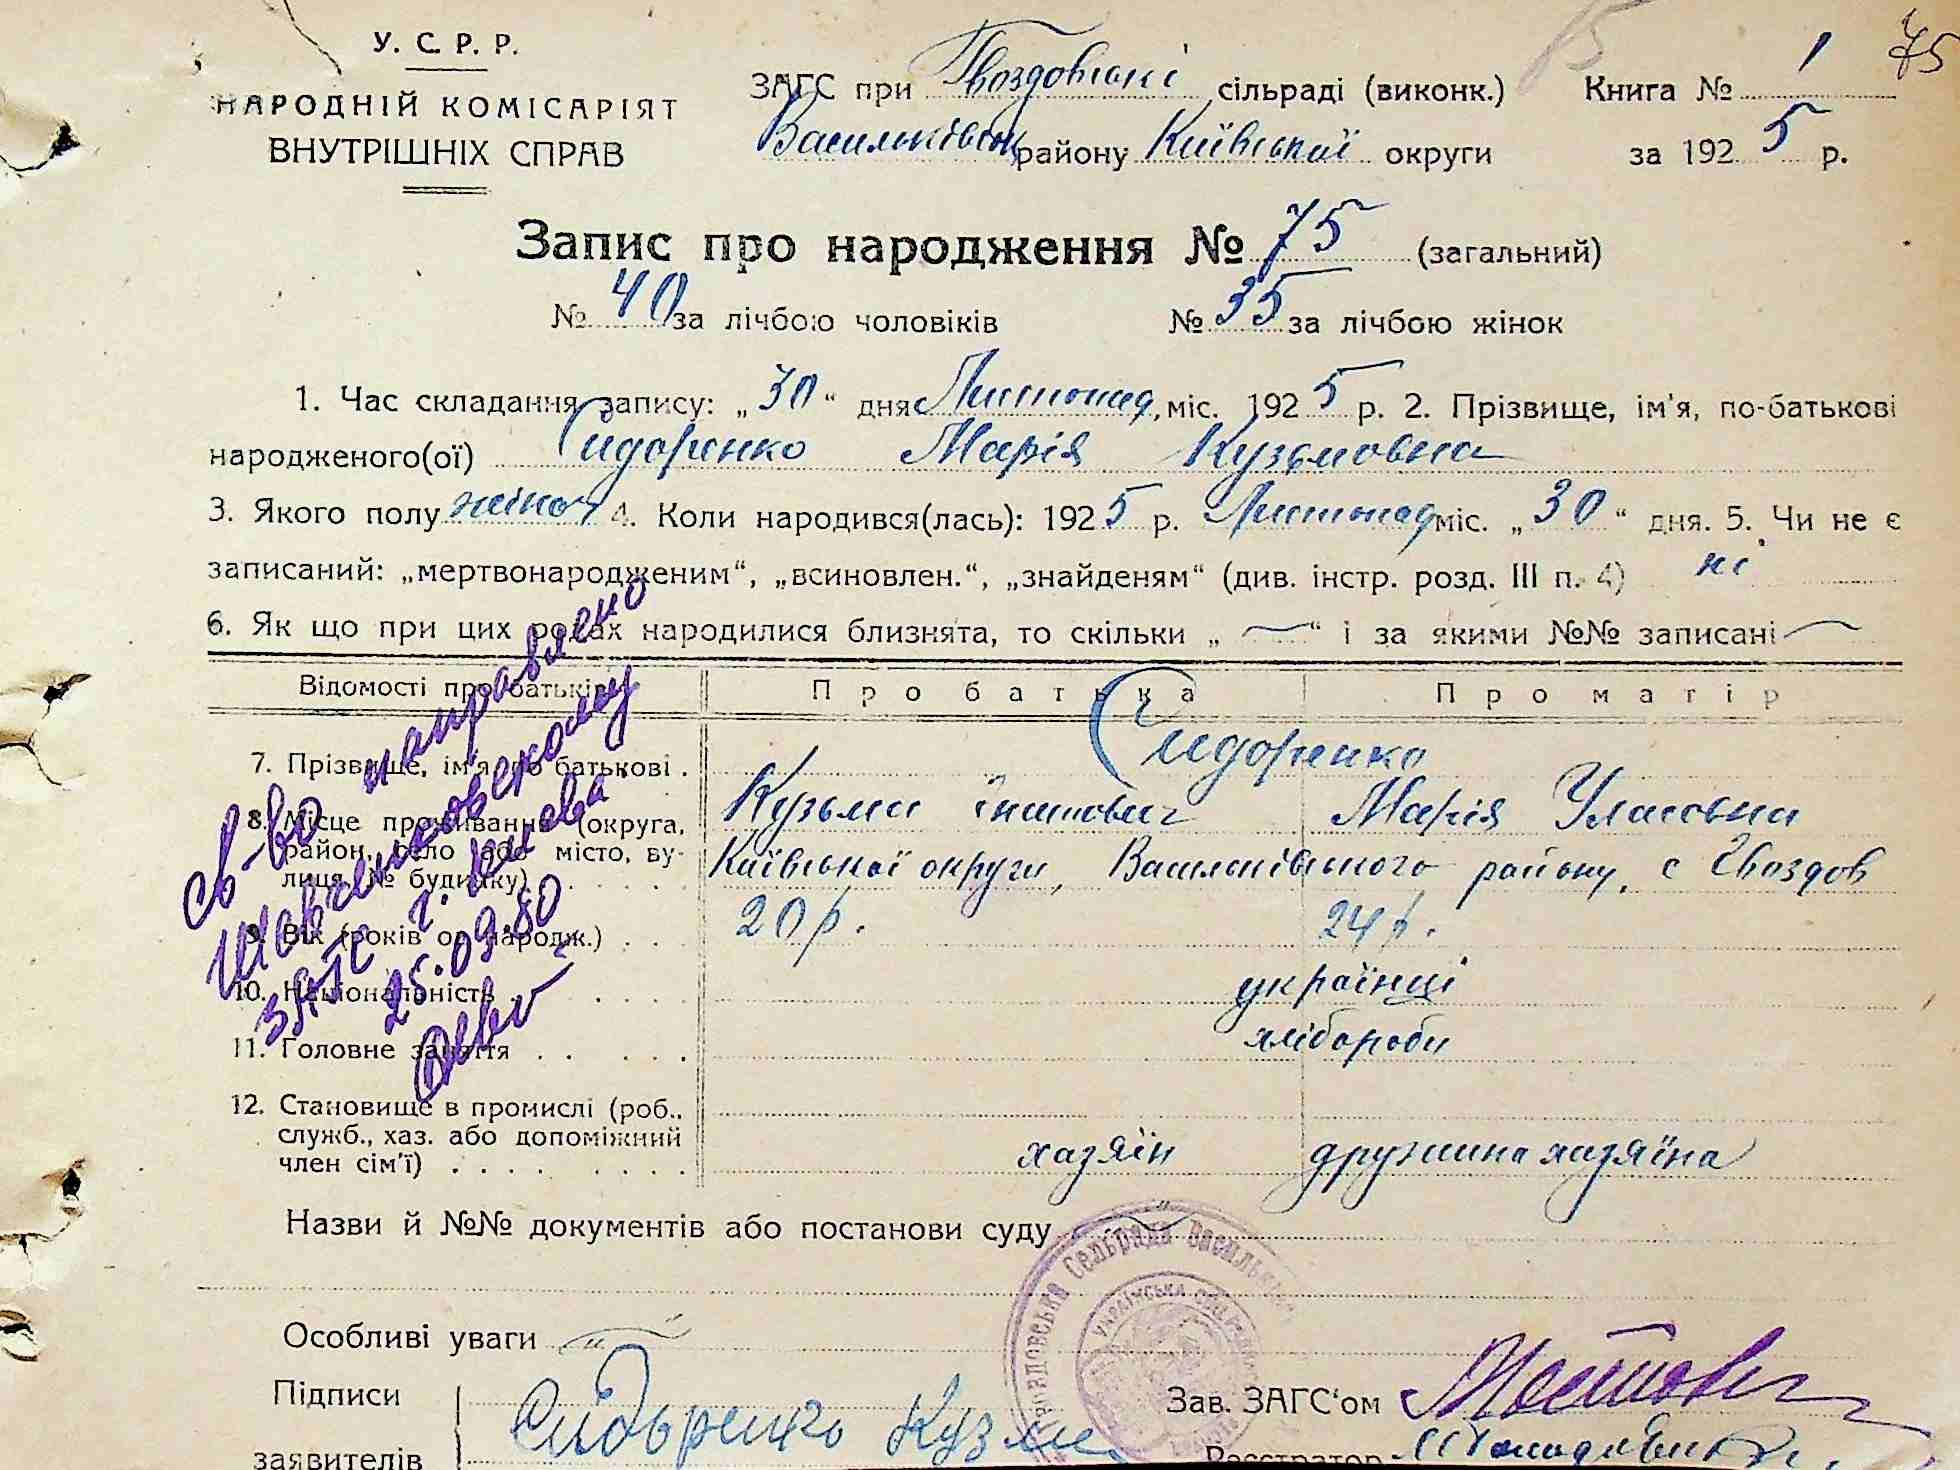 75
У. С. Р. Р.
НАРОДНІЙ КОМІСАРІЯТ
ВНУТРІШНІХ СПРАВ
ЗАГС при Гвоздовські сільраді (виконк.) Книга № 1
Васильківськ району Київської округи за 1925 р.
Запис про народження № 75 (загальний)
№ 40 за лічбою чоловіків № 35 за лічбою жінок
1. Час складання запису: „30“ дня Листопад, міс. 1925 р. 2. Прізвище, ім'я, по-батькові
народженого(ої) Сидоренко Марія Кузьмовна
3. Якого полу жіноч 4. Коли народився(лась): 1925 р. Листопад міс. „30“ дня. 5. Чи не є
записаний: „мертвонародженим“, „всиновлен.“, „знайденям“ (див. інстр. розд. III п. 4) ні
6. Як що при цих родах народилися близнята, то скільки „ — “ і за якими №№ записані —
Відомості про батьків Про батька Про матір
7. Прізвище, ім'я по батькові . Сидоренко
Кузьма Ігнатович Марія Уласовна
8. Місце проживання (округа,
район, село або місто, ву-
лиця, № будинку) Київської округи, Васильківського району, с Гвоздов
9. Вік (років од народж.) . . . 20 р. 24 р.
10. Національність українці
11. Головне заняття хлібороби
12. Становище в промислі (роб.,
служб., хаз. або допоміжний
член сім'ї) хазяїн дружина хазяїна
св-во направлено
Шевченковскому
ЗАГС г. Киева
25.09.80
Назви й №№ документів або постанови суду
Особливі уваги „
Підписи
заявителів
Сидоренко Кузма
Зав. ЗАГС'ом
Реєстратор
Сельрада Васильк
УКРАЇНСЬКА СОЦ.